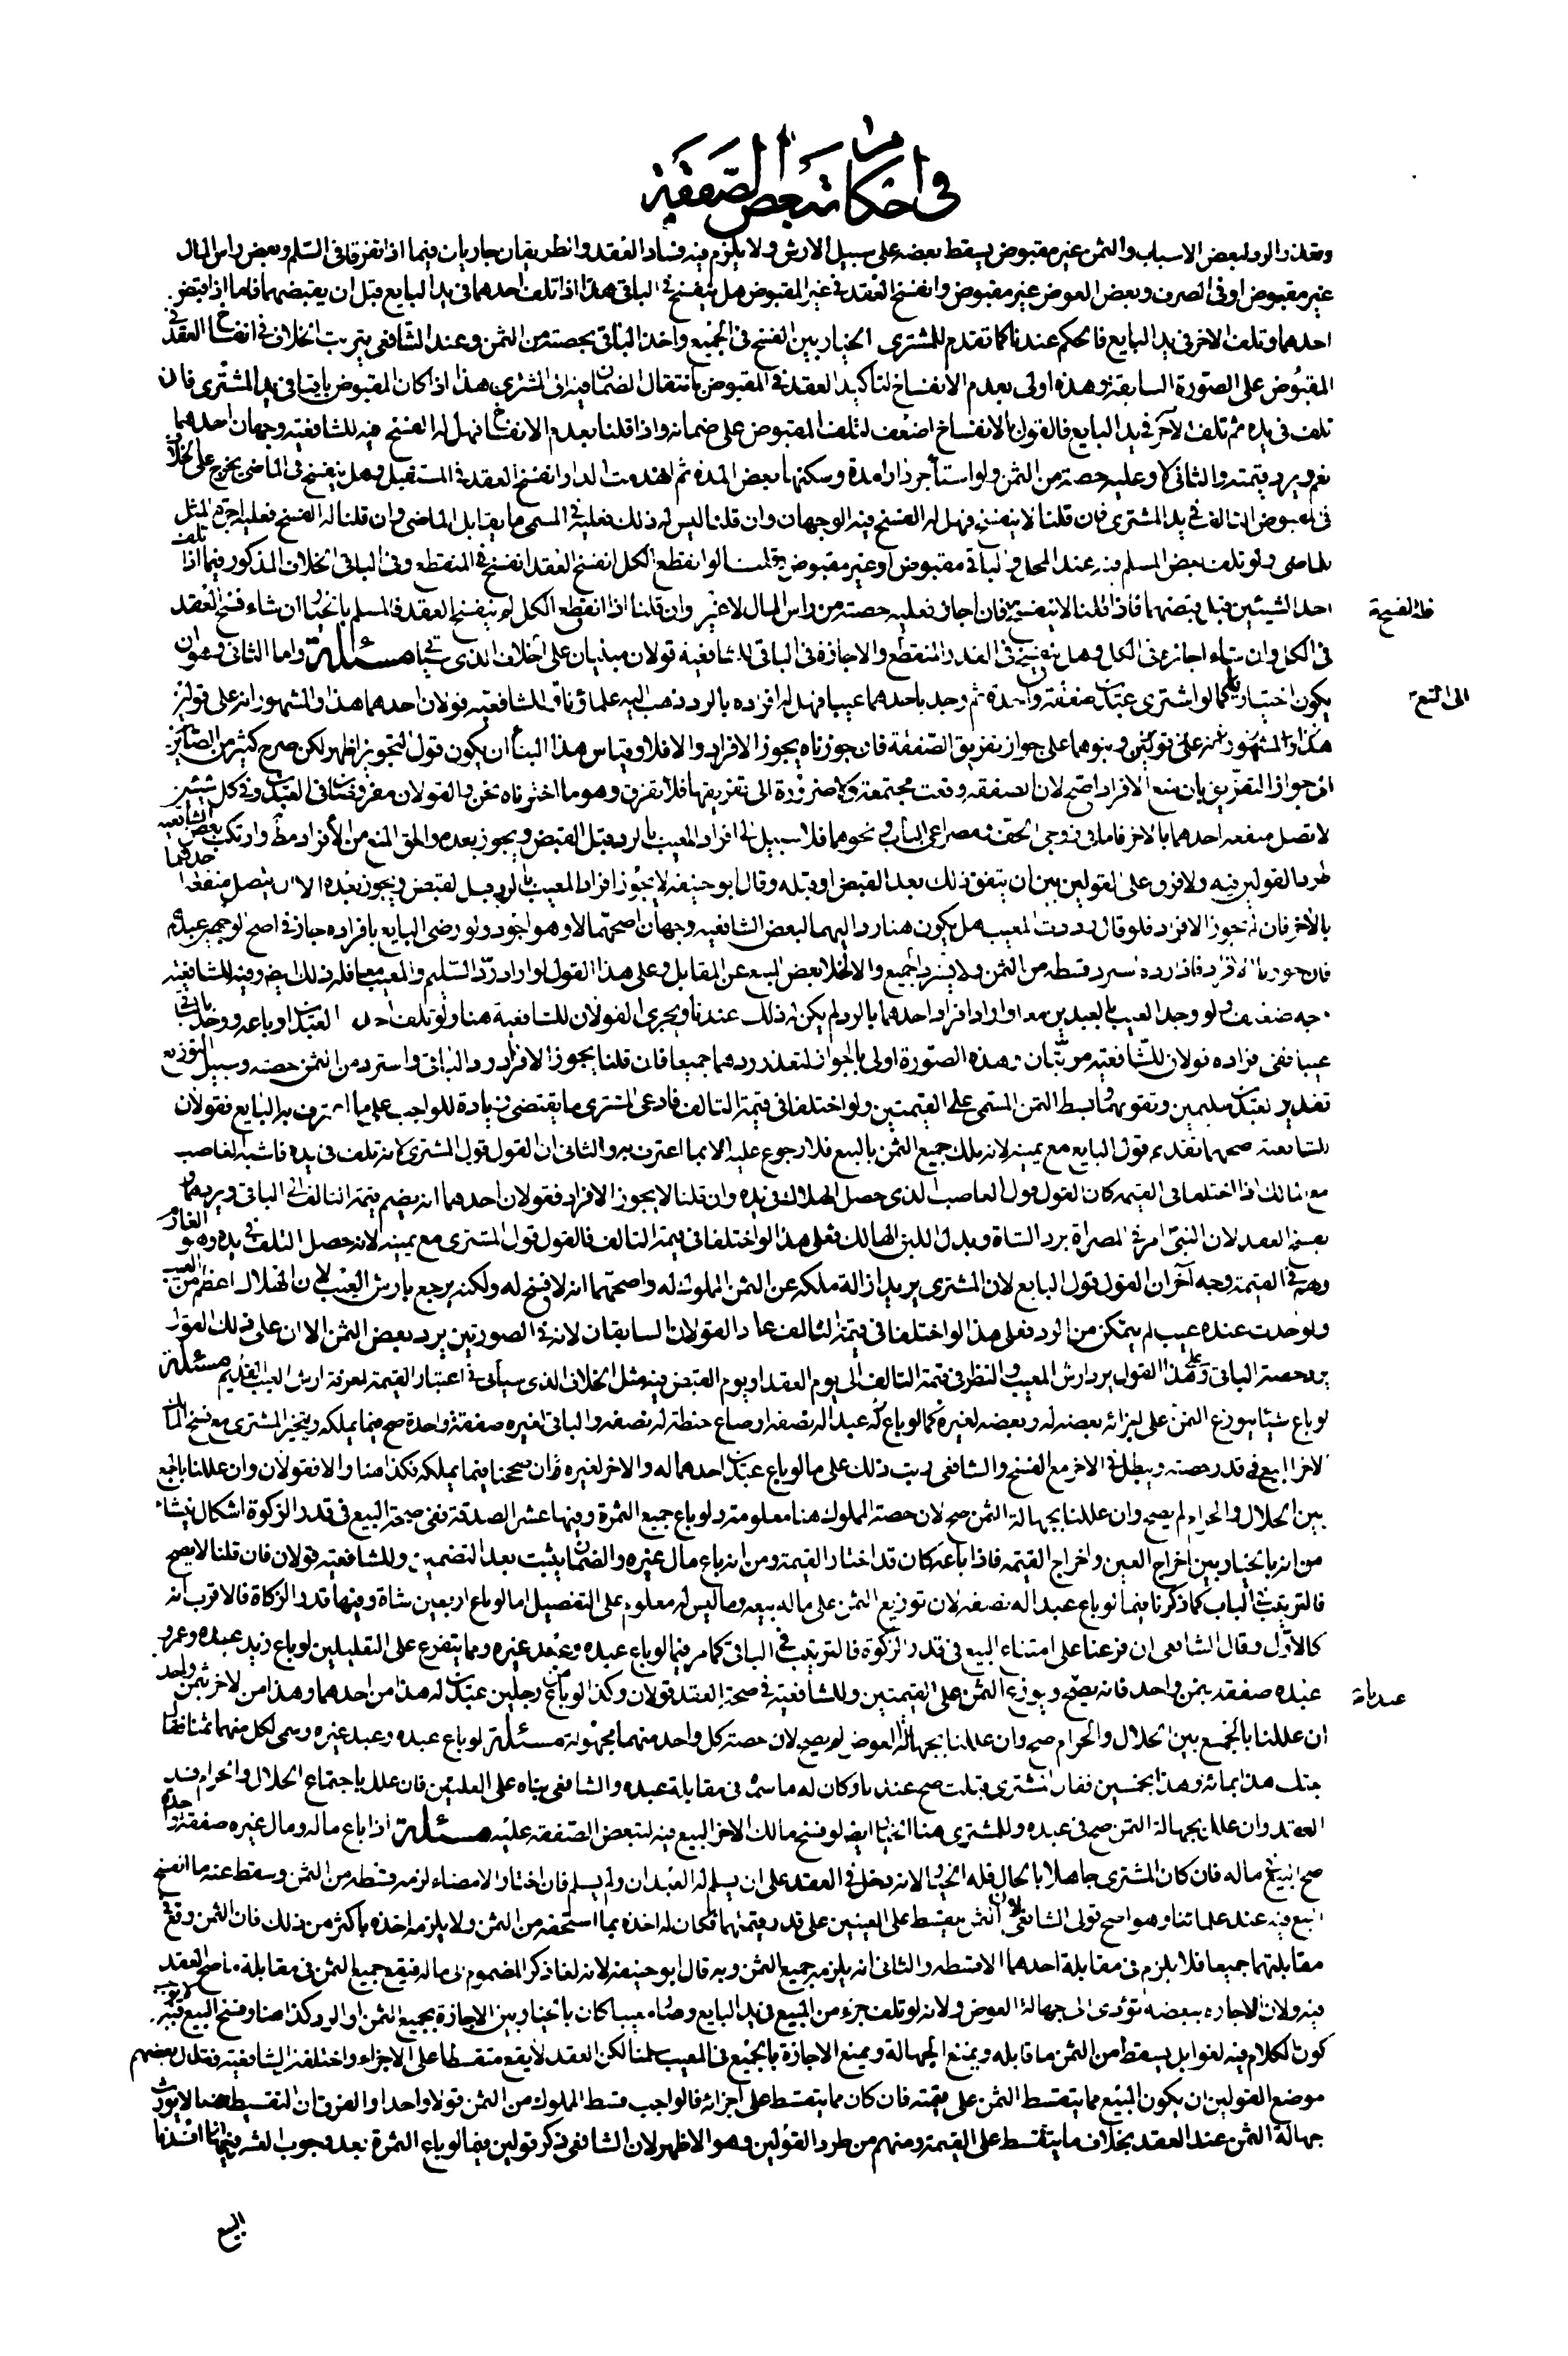 في احكام تبعض الصفقة
وتعذر الرد لبعض الاسباب والثمن غير مقبوض يسقط بعضه على سبيل الارش ولا يلزم فيه فساد العقد والطريقان جاريان فيما اذا تفرقا في السلم وبعض راس المال
غير مقبوض او في الصرف وبعض العوض غير مقبوض وانفسخ العقد في غير المقبوض هل ينفسخ في الباقي هذا اذا تلف احدهما في يد البايع قبل ان يقبضهما فاما اذا قبض
احدهما وتلف الاخر في يد البايع فالحكم عندنا كما تقدم للمشتري الخيار بين الفسخ في الجميع واخذ الباقي بحصته من الثمن وعند الشافعي يترتب الخلاف في انفساخ العقد في
المقبوض على الصورة السابقة وهذه اولى بعدم الانفساخ لتأكيد العقد في المقبوض بانتقال الضمان فيه الى المشتري هذا اذا كان المقبوض باقيا في يد المشتري فان
تلف في يده ثم تلف الآخر في يد البايع فالقول بالانفساخ اضعف لتلف المقبوض على ضمانه واذا قلنا بعدم الانفساخ فهل له الفسخ فيه للشافعية وجهان احدهما
نعم ويرد قيمته والثاني لا وعليه حصته من الثمن ولو استأجر دارا مدة وسكنها بعض المدة ثم انهدمت الدار انفسخ العقد في المستقبل وهل ينفسخ في الماضي يخرج على الخلاف
في المقبوض التالف في يد المشتري فان قلنا لا ينفسخ فهل له الفسخ فيه الوجهان وان قلنا ليس له ذلك فعليه في المسمى ما يقابل الماضي وان قلنا له الفسخ فعليه اجرة المثل
للماضي ولو تلف بعض المسلم فيه عند المحل والباقي مقبوض او غير مقبوض وقلنا لو انقطع الكل انفسخ العقد انفسخ في المنقطع وفي الباقي الخلاف المذكور فيما اذا تلف
احد الشيئين قبل قبضهما فاذا قلنا لا ينفسخ فان اجاز فعليه حصته من راس المال لا غير وان قلنا اذا انقطع الكل لم ينفسخ العقد فالمسلم بالخيار ان شاء فسخ العقد
في الكل وان شاء اجازه في الكل وهل ينفسخ في القدر المنقطع والاجازة في الباقي للشافعية قولان مبنيان على الخلاف الذي يجيئ مسئلة واما الثاني وهو ان
يكون اختياريا كما لو اشترى عبدين صفقة واحدة ثم وجد باحدهما عيبا فهل له افراده بالرد ذهب اليه علماؤنا وللشافعية قولان احدهما هذا والمشهور انه على قولين
هكذا والمشهور انه على قولين وبنوهما على جواز تفريق الصفقة فان جوزناه يجوز الافراد والا فلا وقياس هذا البناء ان يكون قول التجويز اظهر لكن صرح كثير من الصائرين
الى جواز التفريق بان منع الافراد اصح لان الصفقة وقعت مجتمعة ولا ضرورة الى تفريقها فلا تفرق وهو ما اخترناه نحن والقولان مفروضان في العبدين وفي كل شيئين
لا تصل منفعة احدهما بالاخر فاما في زوجي الخف ومصراعي الباب ونحوهما فلا سبيل الى افراد المعيب بالرد قبل القبض ويجوز بعده والحق المنع من الافراد مطلقا وارتكب بعض الشافعية
طرد القولين فيه ولا فرق على القولين بين ان يتفق ذلك بعد القبض او قبله وقال ابو حنيفة لا يجوز افراد المعيب بالرد قبل القبض ويجوز بعده الا ان يتصل منفعة احدهما
بالآخر فان لم نجوز الافراد فلو قال رددت المعيب هل يكون هذا ردا لهما لبعض الشافعية وجهان اصحهما لا وهو اجود ولو رضي البايع بافراده جاز في اصح الوجهين عندهم
فان جوزنا الافراد فاذا رده استرد قسطه من الثمن ولا يسترد الجميع والا لخلا بعض المبيع عن المقابل وعلى هذا القول لو اراد رد السليم والمعيب معا فله ذلك ايضا وفيه للشافعية
وجه ضعيف ولو وجد العيب بالعبدين معا واراد افراد احدهما بالرد لم يكن له ذلك عندنا ويجري القولان للشافعية هنا ولو تلف احد العبدين او باعه ووجد بالباقي
عيبا ففي افراده قولان للشافعية مرتبان وهذه الصورة اولى بالجواز لتعذر ردهما جميعا فان قلنا يجوز الافراد رد الباقي واسترد من الثمن حصته وسبيل التوزيع
تقدير العبدين سليمين وتقويمهما وبسط الثمن المسمى على القيمتين ولو اختلفا في قيمة التالف فادعى المشتري ما يقتضي زيادة للواجب على ما اعترف به البايع فقولان
للشافعية اصحهما تقديم قول البايع مع يمينه لانه ملك جميع الثمن بالبيع فلا رجوع عليه الا بما اعترف به والثاني ان القول قول المشتري لانه تلف في يده فاشبه الغاصب
مع المالك اذا اختلفا في القيمة كان القول قول الغاصب الذي حصل الهلاك في يده وان قلنا لا يجوز الافراد فقولان احدهما انه يضم قيمة التالف الى الباقي ويردهما
بفسخ العقد لان النبي امر في المصراة برد الشاة وبدل اللبن الهالك فعلى هذا لو اختلفا في قيمة التالف فالقول قول المشتري مع يمينه لانه حصل التلف في يده وهو الغارم
وهنا في القيمة وجه آخر ان القول قول البايع لان المشتري يريد ازالة ملكه عن الثمن المملوك له واصحهما انه لا فسخ له ولكنه يرجع بارش العيب لان الهلاك اعظم من العيب
ولو حدث عنده عيب لم يتمكن من الرد فعلى هذا لو اختلفا في قيمة التالف عاد القولان السابقان لانه في الصورتين يرد بعض الثمن الا ان على ذلك القول
يرد حصة الباقي وعلى هذا القول يرد ارش المعيب والنظر في قيمة التالف الى يوم العقد او يوم القبض فيه مثل الخلاف الذي سيأتي في اعتبار القيمة لمعرفة ارش العيب القديم مسئلة
لو باع شيئا يتوزع الثمن على اجزائه بعضه له وبعضه لغيره كما لو باع عبدا له نصفه او صاع حنطة له نصفه والباقي لغيره صفقة واحدة صح فيما يملكه ويتخير المشتري مع فسخ المالك
الآخر البيع في قدر حصته ويبطل في الاخر مع الفسخ والشافعي رتب ذلك على ما لو باع عبدين احدهما له والاخر لغيره فان صححنا فيما يملكه فكذا هنا والا فقولان وان عللنا بالجمع
بين الحلال والحرام لم يصح وان عللنا بجهالة الثمن صح لان حصة المملوك هنا معلومة ولو باع جميع الثمرة وفيها عشر الصدقة ففي صحة البيع في قدر الزكوة اشكال ينشأ
من انه بالخيار بين اخراج العين واخراج القيمة فاذا باعه كان قد اختار القيمة ومن انه باع مال غيره والضمان يثبت بعد التضمين وللشافعية قولان فان قلنا لا يصح
فالترتيب في الباب كما ذكرنا فيما لو باع عبدا له نصفه لان توزيع الثمن على ماله بيعه وما ليس له معلوم على التفصيل اما لو باع اربعين شاة وفيها قدر الزكاة فالاقرب انه
كالاول وقال الشافعي ان فرعنا على امتناع البيع في قدر الزكوة فالترتيب في الباقي كما مر فيما لو باع عبده وعبد غيره ومما يتفرع على التعليلين لو باع زيد عبده وعمرو
عبده صفقة بثمن واحد فانه يصح ويوزع الثمن على القيمتين وللشافعية في صحة العقد قولان وكذا لو باع من رجلين عبدين له هذا من احدهما وهذا من الاخر بثمن واحد
ان عللنا بالجمع بين الحلال والحرام صح وان عللنا بجهالة العوض لم يصح لان حصة كل واحد منهما مجهولة مسئلة لو باع عبده وعبد غيره وسمى لكل منهما ثمنا فقال
بعتك هذا بمائة وهذا بخمسين فقال المشتري قبلت صح عندنا وكان له ما سمى في مقابلة عبده والشافعي بناه على العلتين فان علل باجتماع الحلال والحرام فسد
العقد وان علل بجهالة الثمن صح في عبده وللمشتري هنا الخيار ايضا لو فسخ مالك الاخر البيع فيه لتبعض الصفقة عليه مسئلة اذا باع ماله ومال غيره صفقة واحدة
صح البيع في ماله فان كان المشتري جاهلا بالحال فله الخيار لانه دخل في العقد على ان يسلم له العبدان ولم يسلم فان اختار الامضاء لزمه قسطه من الثمن وسقط عنه ما انفسخ
البيع فيه عند علمائنا وهو اصح قولي الشافعي لان الثمن يتقسط على العينين على قدر قيمتهما فكان له اخذه بما استحقه من الثمن ولا يلزمه اخذه باكثر من ذلك فان الثمن وقع في
مقابلتهما جميعا فلا يلزم في مقابلة احدهما الا قسطه والثاني انه يلزمه جميع الثمن وبه قال ابو حنيفة لانه لغا ذكر المضموم الى ماله فيقع جميع الثمن في مقابلة ما صح العقد
فيه ولان الاجازة ببعضه تؤدي الى جهالة العوض ولانه لو تلف جزء من المبيع في يد البايع وصار معيبا كان بالخيار بين الاجازة بجميع الثمن او الرد كذا هنا وفسخ البيع فيه لا يوجب
كون الكلام فيه لغوا بل يسقط من الثمن ما قابله ويمنع الجهالة ويمنع الاجازة بالجميع في المعيب سلمنا لكن العقد لا يقع متقسطا على الاجزاء واختلفت الشافعية فقال بعضهم
موضع القولين ان يكون المبيع مما يتقسط الثمن على قيمته فان كان مما يتقسط على اجزائه فالواجب قسط المملوك من الثمن قولا واحدا والفرق ان التقسيط هنا لا يورث
جهالة الثمن عند العقد بخلاف ما يتقسط على القيمة ومنهم من طرد القولين وهو الاظهر لان الشافعي ذكر قولين فيما لو باع الثمرة بعد وجوب العشر فيها اذا افسدنا
البيع